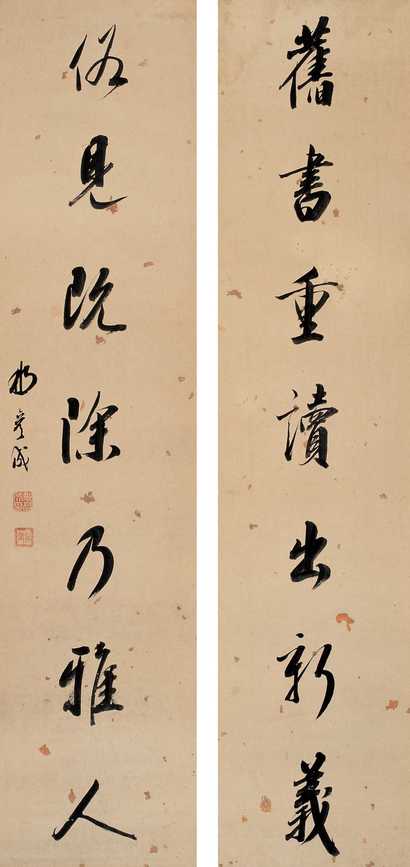 舊書重讀出新義
俗見既除乃雅人